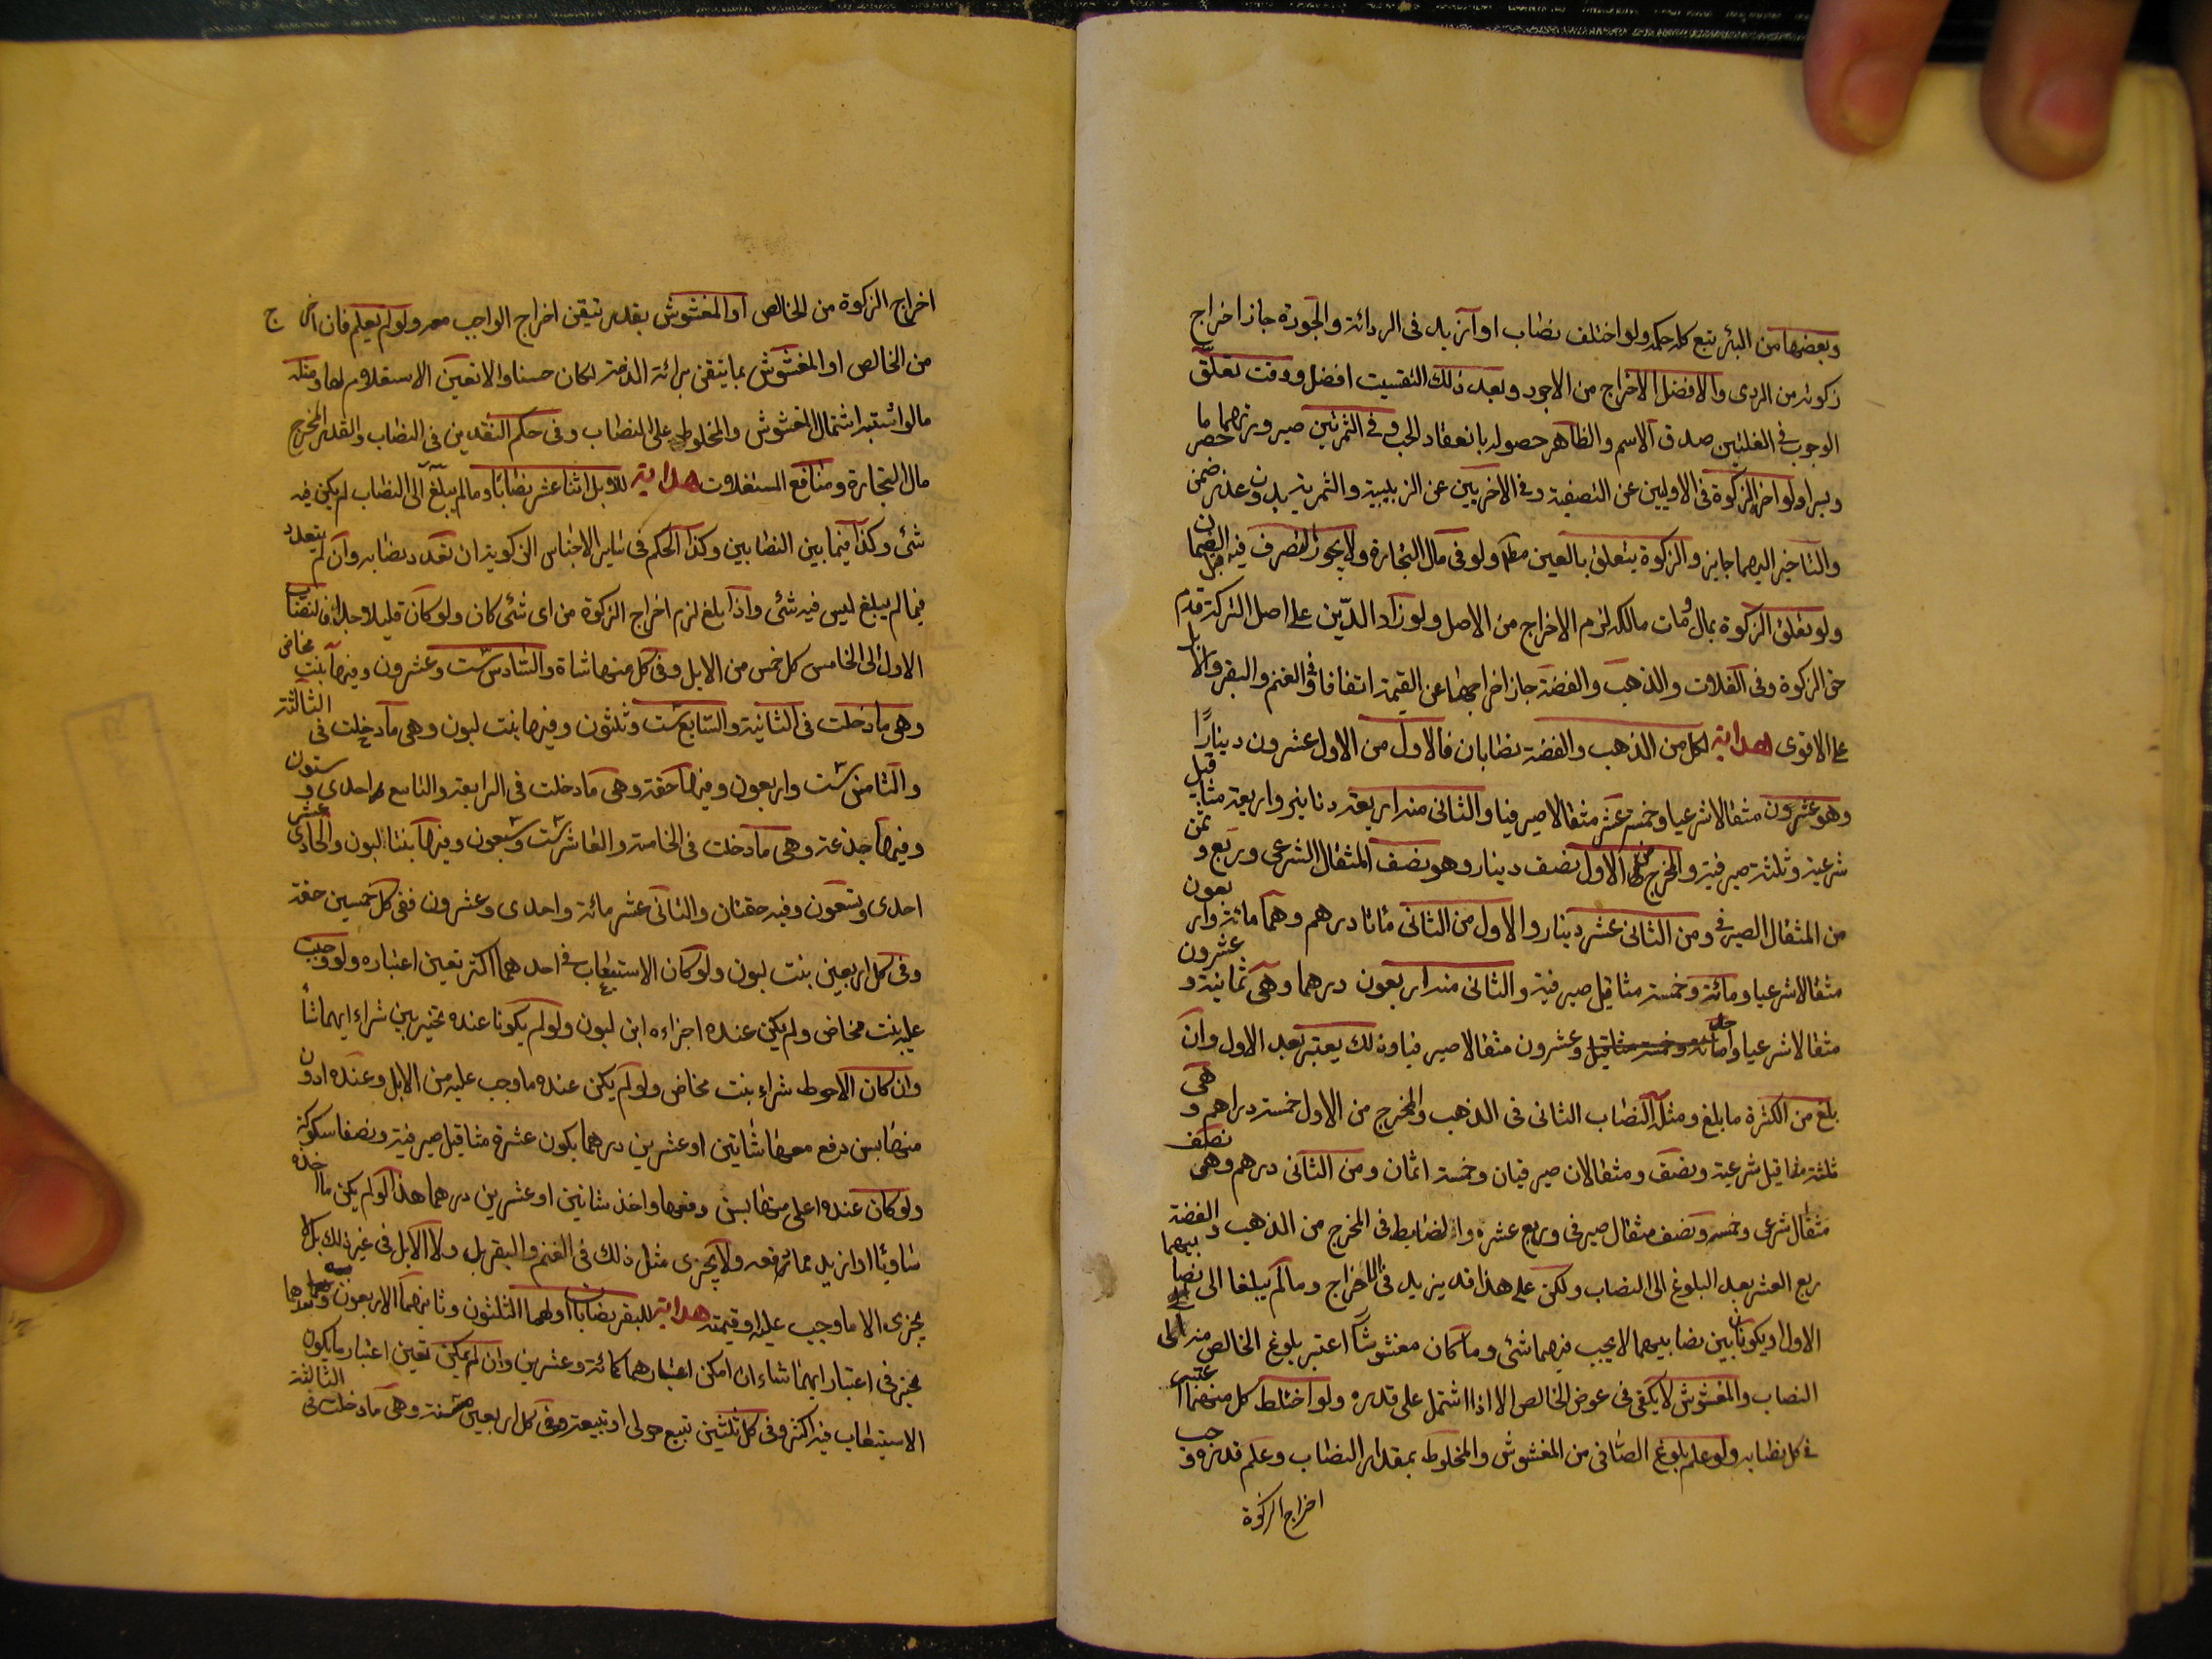 وبعضها من البئر يتبع كله حكمه ولو اختلف نصاب او ازيد فى الردائة والجودة جاز اخراج
زكوته من الردى والافضل الاخراج من الاجود وبعد ذلك التقسيت افضل ووقت تعلق
الوجوب فى الغلتين صدق الاسم والظاهر حصوله بانعقاد الحب وفى الثمرتين صيرورتهما حصرما
وبسرا ولو اخر الزكوة فى الاوليين عن التصفية وفى الاخريين عن الزبيبية والتمرية بدون عذر ضمن
والتاخير اليهما جايز والزكوة يتعلق بالعين مطلقا ولو فى مال التجارة ولا يجوز التصرف فيه قبل الضمان
ولو تعلق الزكوة بمال ومات مالكه لزم الاخراج من الاصل ولو زاد الدين على اصل التركة قدم
حق الزكوة وفى الغلات والذهب والفضة جاز اخراجها عن القيمة اتفاقا وفى الغنم والبقر والابل
على الاقوى هداية لكل من الذهب والفضة نصابان فالاول من الاول عشرون دينارًا
وهو عشرون مثقالا شرعيا وخمسة عشر مثقالا صيرفيا والثانى منه اربعة دنانير واربعة مثاقيل
شرعية وثلثة صيرفية والمخرج من الاول نصف دينار وهو نصف المثقال الشرعى وربع وثمن
من المثقال الصيرفى ومن الثانى عشر دينار والاول من الثانى مأتا درهم وهما مائة واربعون
مثقالا شرعيا ومائة وخمسة مثاقيل صيرفية والثانى منه اربعون درهما وهى ثمانية وعشرون
مثقالا شرعيا واحد وعشرون مثقالا صيرفيا وذلك يعتبر بعد الاول وان
بلغ من الكثرة ما بلغ ومثله النصاب الثانى فى الذهب والمخرج من الاول خمسة دراهم وهى
ثلثة مثاقيل شرعية ونصف ومثقالان صيرفيان وخمسة اثمان ومن الثانى درهم وهى نصف
مثقال شرعى وخمسه ونصف مثقال صيرفى وربع عشره والضابط فى المخرج من الذهب والفضة
ربع العشر بعد البلوغ الى النصاب ولكن على هذا قد يزيد فى الاخراج وما لم يبلغا الى نصابيهما
الاول او يكونان بين نصابيهما لا يجب فيهما شئ وما كان مغشوشا اعتبر بلوغ الخالص منه الى
النصاب والمغشوش لا يكفى فى عوض الخالص الا اذا اشتمل على قدره ولو اختلط كل منهما اعتبر
فى كل نصابه ولو علم بلوغ الصافى من المغشوش والمخلوط بمقدار النصاب وعلم قدره وجب
اخراج الزكوة
اخراج الزكوة من الخالص او المغشوش بقدر تيقن اخراج الواجب معه ولو لم يعلم فان اخرج
من الخالص او المغشوش بما يتقن برائة الذمة لكان حسنا والا تعين الاستعلام لها ومثله
ما لو اشتبه اشتمال المغشوش والمخلوط على النصاب وفى حكم النقدين فى النصاب والقدر المخرج
مال التجارة ومنافع المستغلات هداية للابل اثنا عشر نصابا وما لم يبلغ الى النصاب لم يكن فيه
شئ وكذا فيما بين النصابين وكذا الحكم فى ساير الاجناس الزكوية ان تعدد نصابه وان لم يتعدد
فيما لم يبلغ ليس فيه شئ واذا بلغ لزم اخراج الزكوة من اى شئ كان ولو كان قليلا جدا فالنصاب
الاول الى الخامس كل خمس من الابل وفى كل منها شاة والسادس ست وعشرون وفيها بنت مخاض
وهى ما دخلت فى الثانية والسابع ست وثلثون وفيها بنت لبون وهى ما دخلت فى الثالثة
والثامن ست واربعون وفيها حقة وهى ما دخلت فى الرابعة والتاسع احدى وستون
وفيها جذعة وهى ما دخلت فى الخامسة والعاشر ست وسبعون وفيها بنتا لبون والحادى عشر
احدى وتسعون وفيه حقتان والثانى عشر مائة واحدى وعشرون ففى كل خمسين حقة
وفى كل اربعين بنت لبون ولو كان الاستيعاب فى احدهما اكثر تعين اعتباره ولو وجبت
عليه بنت مخاض ولم يكن عنده اجزاءه ابن لبون ولو لم يكونا عنده تخير بين شراء ايهما شأ
وان كان الاحوط شراء بنت مخاض ولو لم يكن عنده ما وجب عليه من الابل وعنده ادون
منها بسن دفع معها شاتين او عشرين درهما يكون عشرة مثاقيل صيرفية ونصفا مسكوكة
ولو كان عنده اعلى منها بسن دفعها واخذ شاتين او عشرين درهما هذا لو لم يكن ما اخذه
مساويا او ازيد مما دفعه ولا يجرى مثل ذلك فى الغنم والبقر بل ولا الابل فى غير ذلك بل لا
يجزى الا ما وجب عليه او قيمته هداية للبقر نصابان اولهما الثلثون وثانيهما الاربعون وبعدهما
يتخير فى اعتبار ايهما شاء ان امكن اعتبارهما كمائة وعشرين وان لم يمكن تعين اعتبار ما يكون
الاستيعاب فيه اكثر وفى كل ثلثين تبيع حولى او تبيعة وفى كل اربعين مسنة وهى ما دخلت فى الثالثة